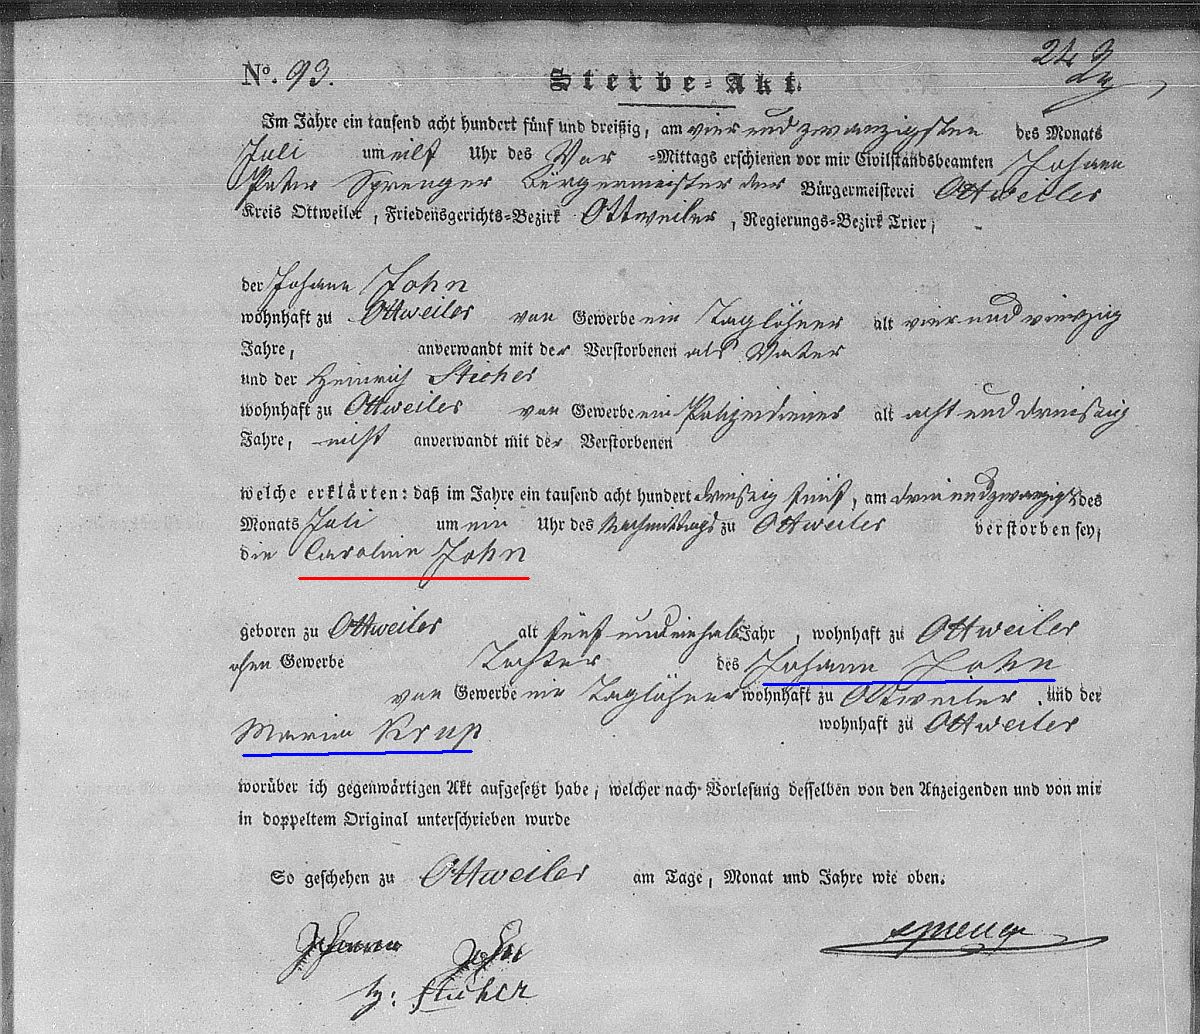 No. 93.
Sterbe-Akt.
Im Jahre ein tausend acht hundert fünf und dreißig, am vier und zwanzigsten des Monats
Juli um eilf Uhr des Vor-Mittags erschienen vor mir Civilstandsbeamten Johann
Peter Sprenger Bürgermeister der Bürgermeisterei Ottweiler
Kreis Ottweiler, Friedensgerichts-Bezirk Ottweiler, Regierungs-Bezirk Trier;
der Johann John
wohnhaft zu Ottweiler von Gewerbe ein Taglöhner alt vier und vierzig
Jahre, anverwandt mit der Verstorbenen als Vater
und der Heinrich Sticher
wohnhaft zu Ottweiler von Gewerbe ein Polizeidiener alt acht und dreissig
Jahre, nicht anverwandt mit der Verstorbenen
welche erklärten: daß im Jahre ein tausend acht hundert dreissig fünf, am drei und zwanzigst des
Monats Juli um ein Uhr des Nachmittags zu Ottweiler verstorben sey,
die Caroline John
geboren zu Ottweiler alt fünf und ein halb Jahr, wohnhaft zu Ottweiler
ohne Gewerbe Tochter des Johann John
von Gewerbe ein Taglöhner wohnhaft zu Ottweiler und der
Maria Krup wohnhaft zu Ottweiler
worüber ich gegenwärtigen Akt aufgesetzt habe, welcher nach Vorlesung desselben von den Anzeigenden und von mir
in doppeltem Original unterschrieben wurde
So geschehen zu Ottweiler am Tage, Monat und Jahre wie oben.
Johann John
Sticher